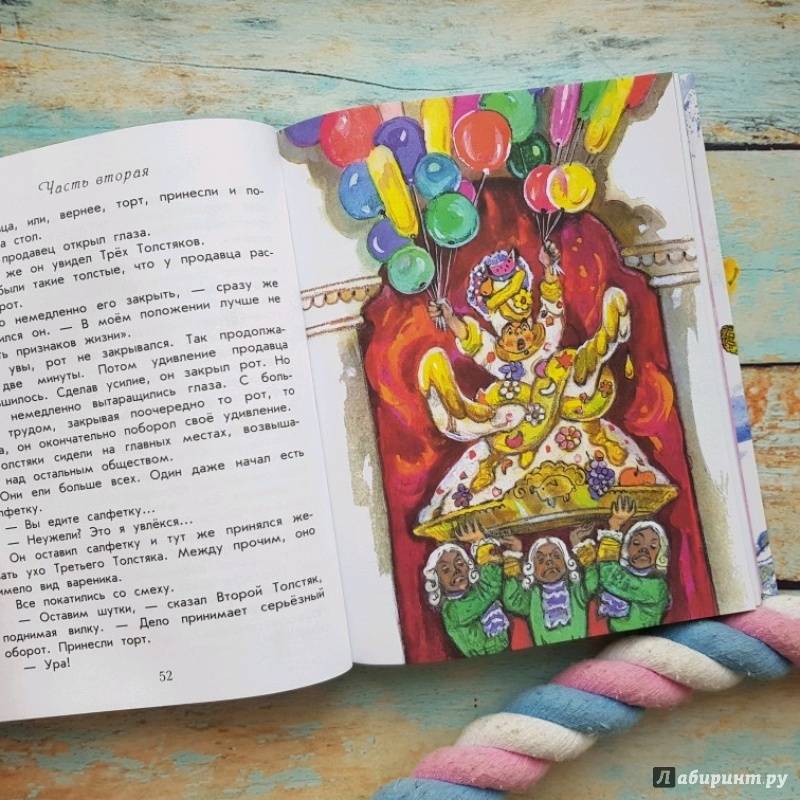 Часть вторая
ца, или, вернее, торт, принесли и по-
а стол.
продавец открыл глаза.
же он увидел Трёх Толстяков.
были такие толстые, что у продавца рас-
рот.
о немедленно его закрыть, — сразу же
ился он. — В моём положении лучше не
ть признаков жизни».
увы, рот не закрывался. Так продолжа-
две минуты. Потом удивление продавца
ьшилось. Сделав усилие, он закрыл рот. Но
немедленно вытаращились глаза. С боль-
трудом, закрывая поочередно то рот, то
а, он окончательно поборол своё удивление.
олстяки сидели на главных местах, возвыша-
над остальным обществом.
Они ели больше всех. Один даже начал есть
лфетку.
— Вы едите салфетку...
— Неужели? Это я увлёкся...
Он оставил салфетку и тут же принялся же-
вать ухо Третьего Толстяка. Между прочим, оно
имело вид вареника.
Все покатились со смеху.
— Оставим шутки, — сказал Второй Толстяк,
поднимая вилку. — Дело принимает серьёзный
оборот. Принесли торт.
— Ура!
52
Лабиринт.ру